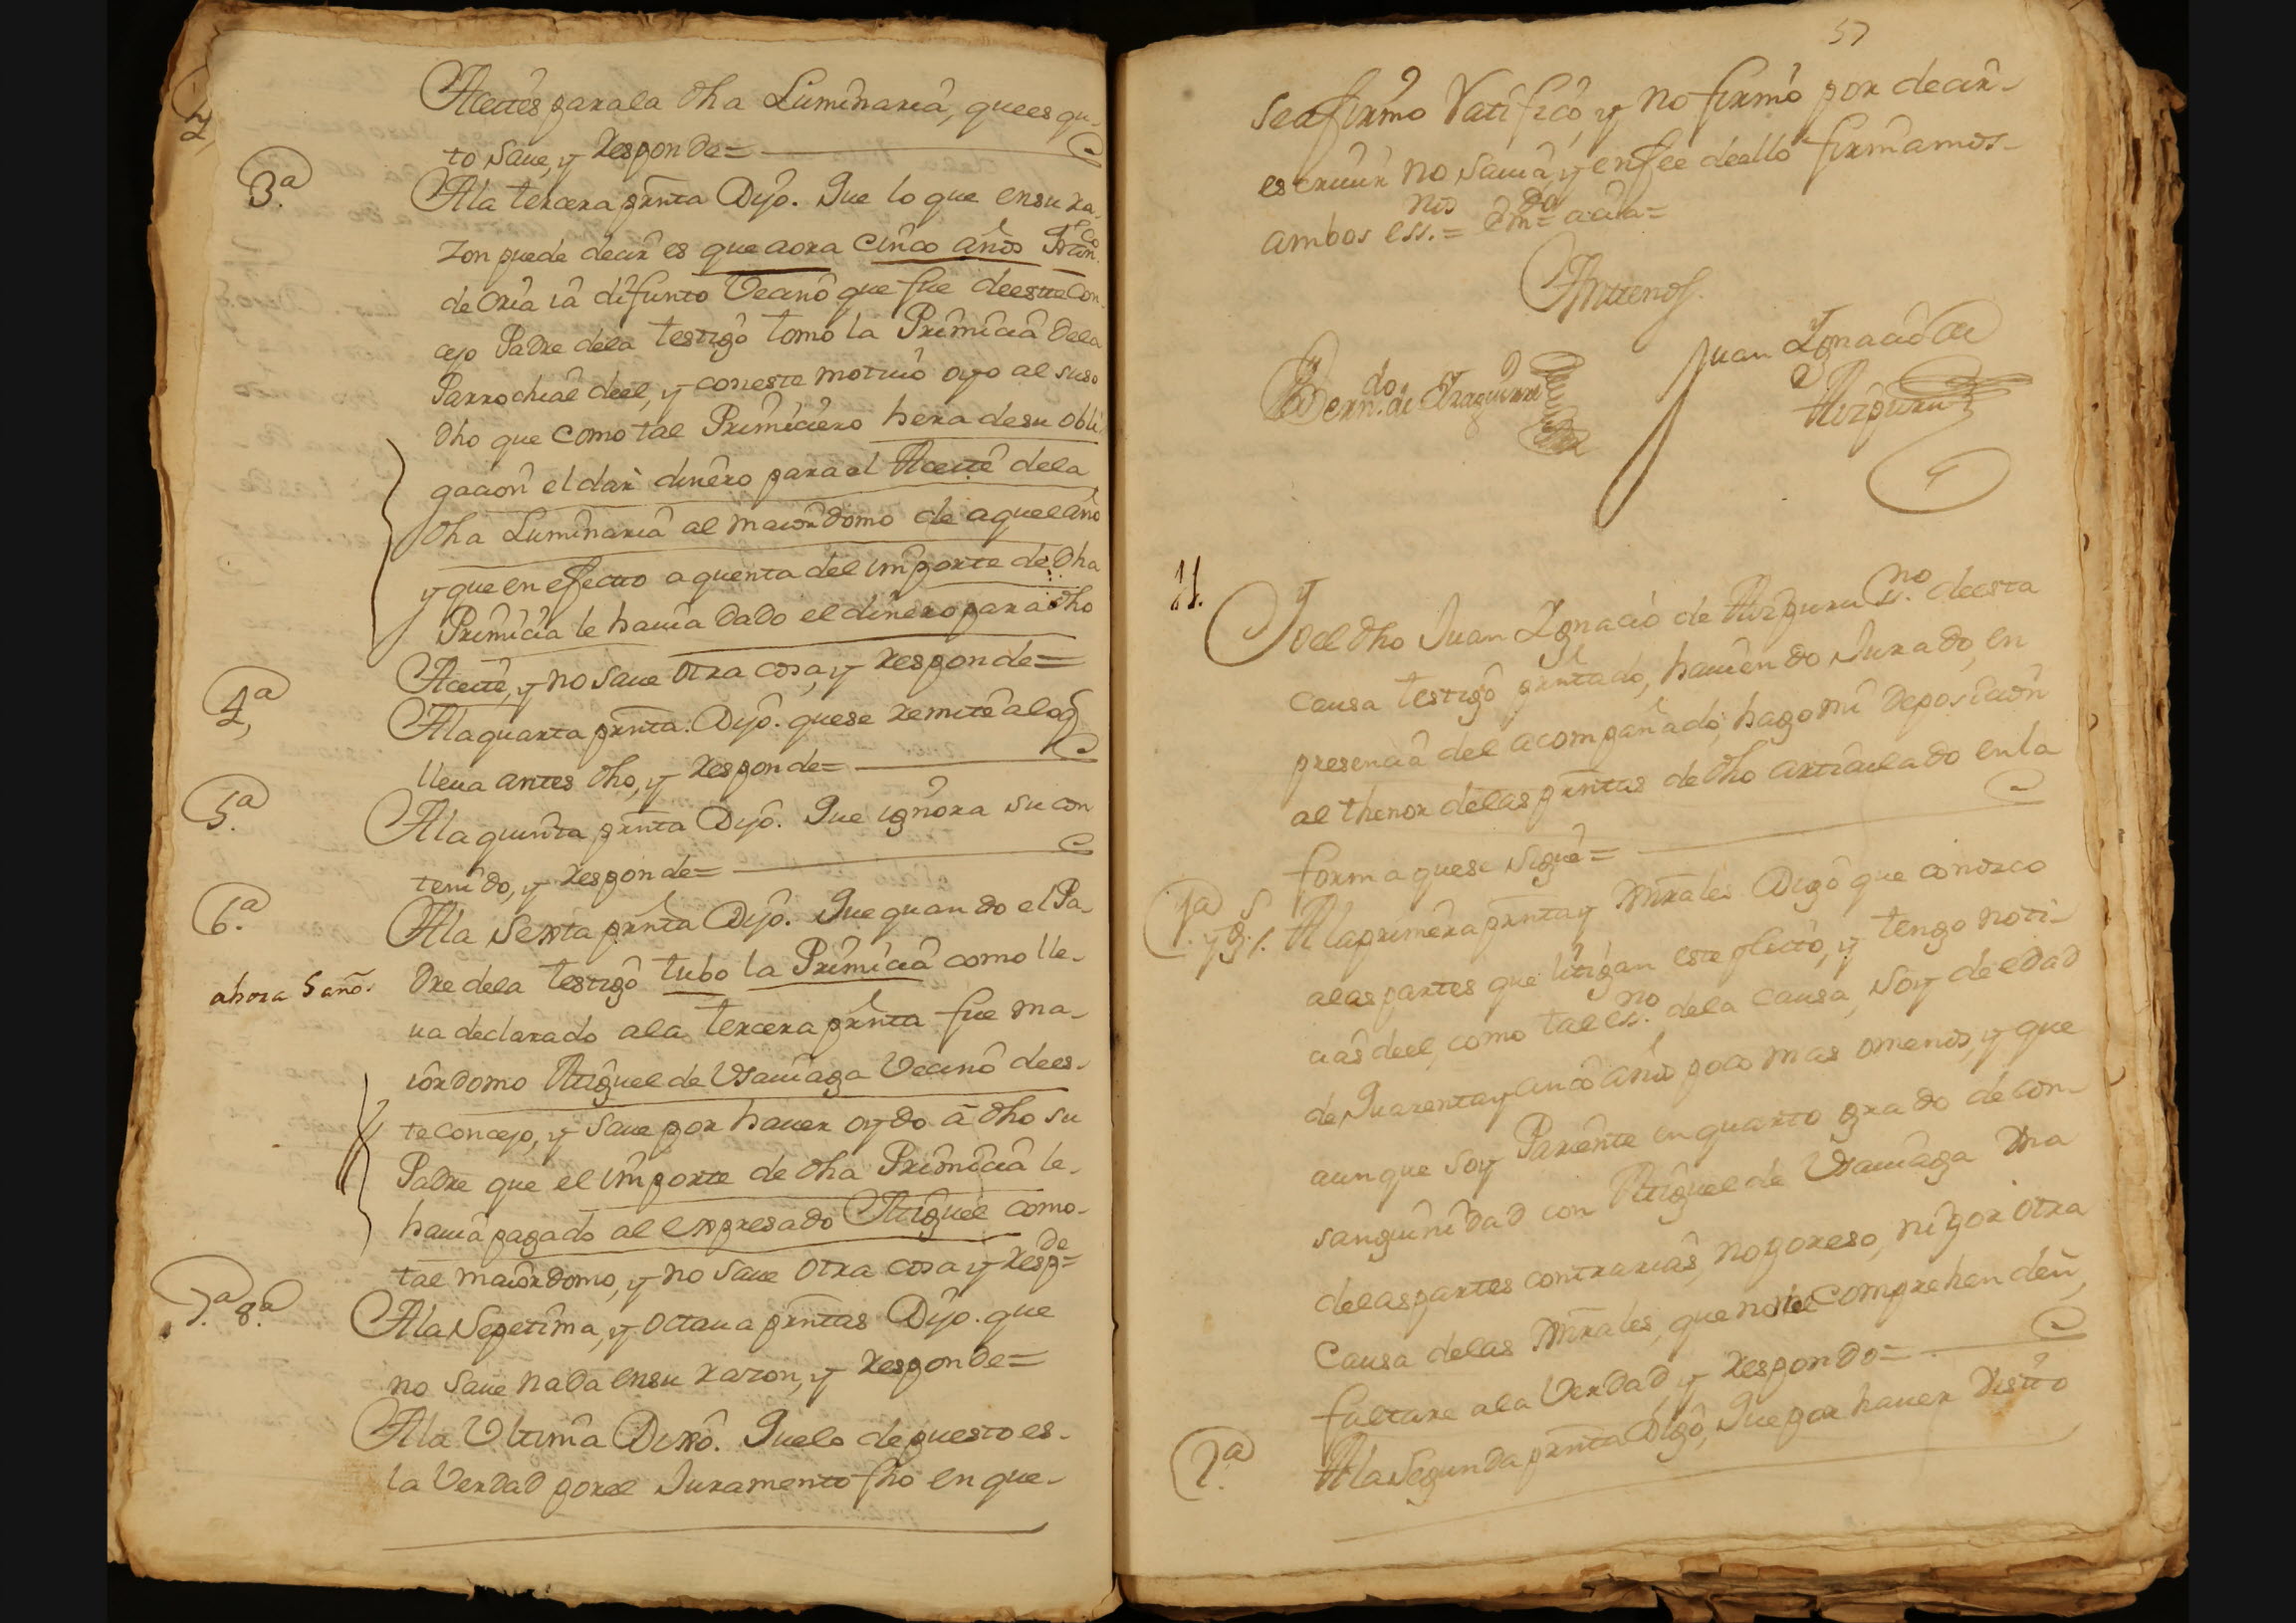 Aceites para la dha Luminaria, que es qu-
to save, y Responde=
3.ª
A la tercera prnta Dijo. Que lo que en su ra-
zon puede decir es que aora cinco años Fran.co
de Oria ia difunto Vecino que fue de este Con-
cejo Padre de la testigo tomo la Primicia de la
Parrochial de el, y con este motivo oyo al suso
dho que como tal Primiciero hera de su obli-
gacion el dar dinero para el Aceite de la
dha Luminaria al maiordomo de aquel año
y que en efecto a quenta del importe de dha
Primicia le havia dado el dinero para dho
Aceite, y no save otra cosa, y Responde=
4.ª
A la quarta prnta. Dijo. que se remite a lo q
lleva antes dho, y Responde=
5.ª
A la quinta prnta Dijo. Que ignora su con
tenido, y Responde=
6.ª
A la Sexta prnta Dijo. Que quando el Pa-
ahora 5 añ.s
dre de la testigo tubo la Primicia como lle-
va declarado a la tercera prnta fue ma-
iordomo Miguel de Vsaviaga Vecino de es-
te concejo, y save por haver oydo â dho su
Padre que el importe de dha Primicia le-
havia pagado al expresado Miguel como-
tal maiordomo, y no save otra cosa y Resp.de=
7.ª 8.ª
A la Sepetima, y octava prntas Dijo. que
no save nada en su razon, y Responde=
A la Vltima Dixo. Que lo depuesto es-
la Verdad por el Juramento fho en que-
57
se afirmo Ratifico, y no firmo por decir-
escrivir no savia, y en fee de ello firmamos-
ambos ess.nos =
Juan Ygnacio de
Bern.do de
Aizpuru
11.
Yo el dho Juan Ygnacio de Aizpuru ss.no de esta
causa testigo prntado, haviendo Jurado, en
presencia del acompañado, hago mi Deposicion
al thenor de las prntas de dho articulado en la
forma que se sigue=
1.ª y g.s
A la primera prnta y Gnrales Digo que conozco
a las partes que litigan este pleito, y tengo noti-
cias de el, como tal ess.no de la causa, soy de edad
de Quarenta y cinco años poco mas omenos, y que
aunque soy Pariente en quarto grado de con-
sanguinidad con Miguel de Vsaviaga Vna
de las partes contrarias, no por eso, ni por otra
causa de las Gnrales, que no me comprehenden,
faltare a la Verdad, y Respondo=
2.ª
A la Segunda prnta Digo, Que por haver Visto